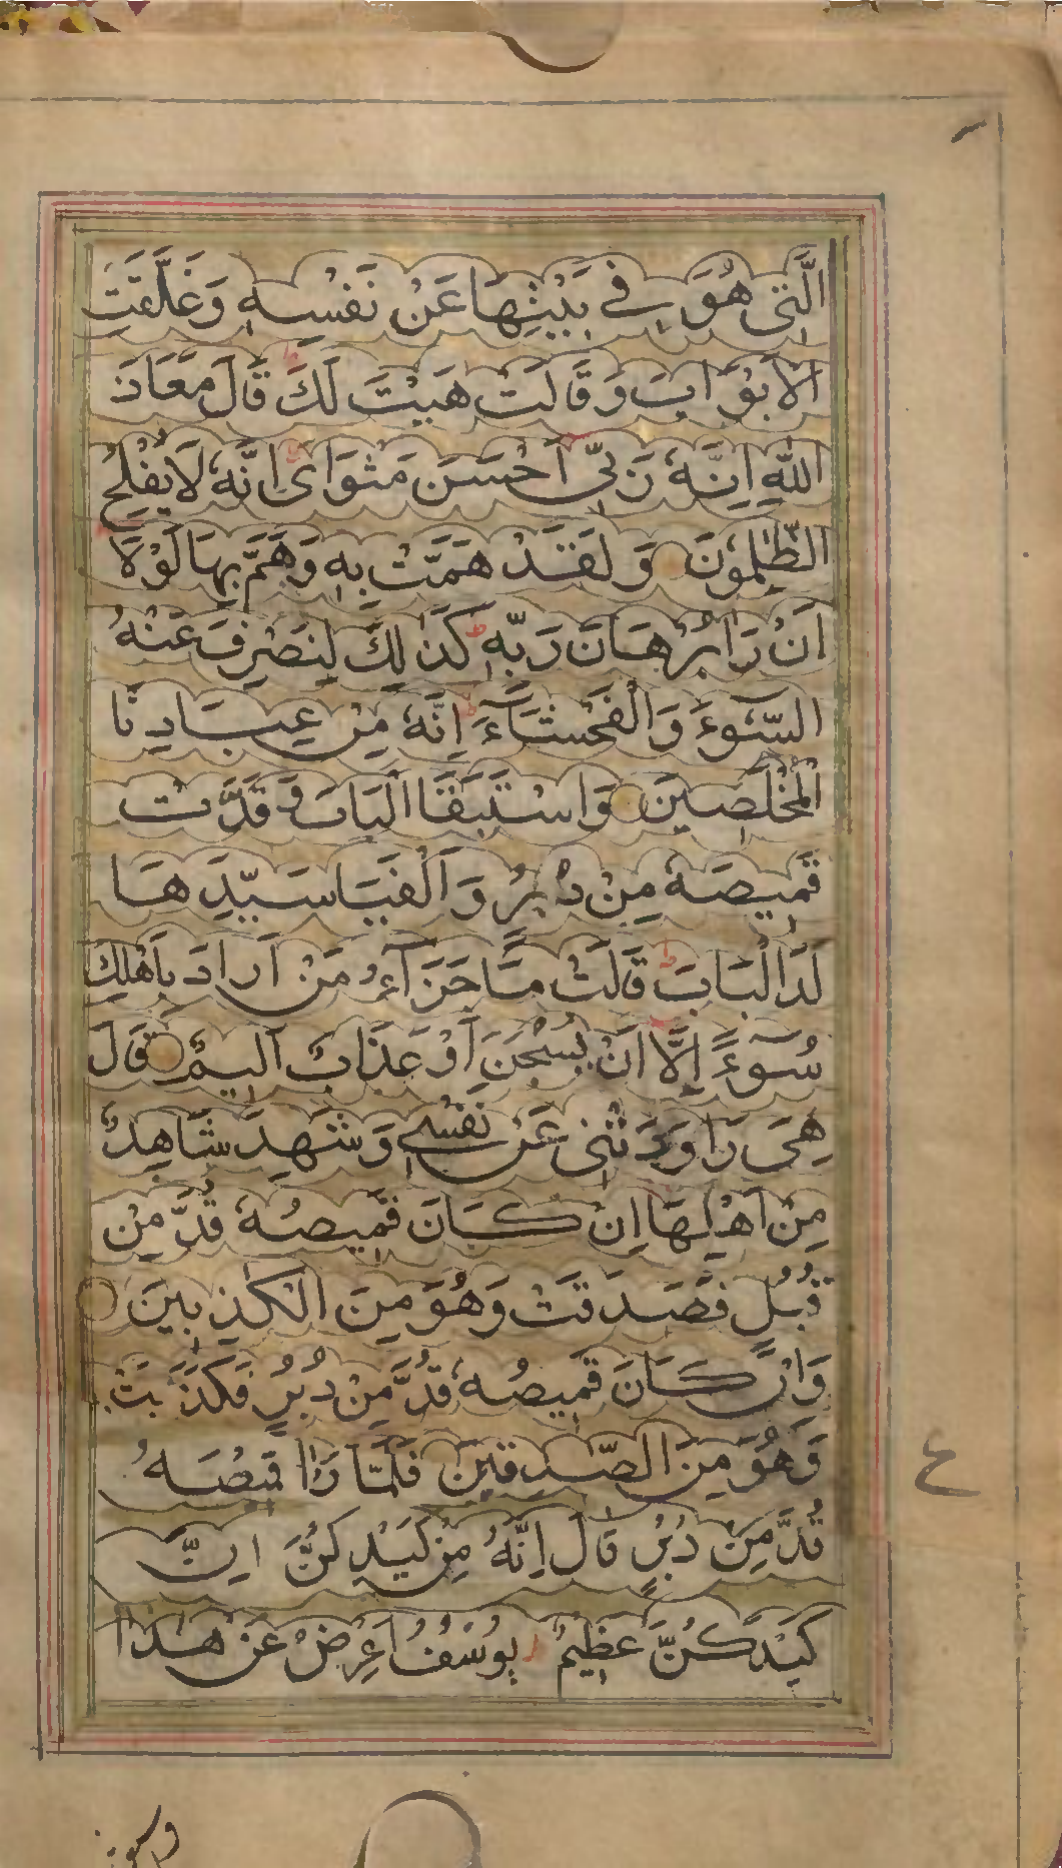 الَّتِى هُوَ فِى بَيْتِهَا عَنْ نَفْسِهٖ وَغَلَّقَتِ
الْاَبْوَابَ وَقَالَتْ هَيْتَ لَكَ قَالَ مَعَاذَ
اللّٰهِ اِنَّهٗ رَبِّىٓ اَحْسَنَ مَثْوَاىَ اِنَّهٗ لَا يُفْلِحُ
الظّٰلِمُوْنَ وَلَقَدْ هَمَّتْ بِهٖ وَهَمَّ بِهَا لَوْلَآ
اَنْ رَّاٰ بُرْهَانَ رَبِّهٖ كَذٰلِكَ لِنَصْرِفَ عَنْهُ
السُّوْٓءَ وَالْفَحْشَآءَ اِنَّهٗ مِنْ عِبَادِنَا
الْمُخْلَصِيْنَ وَاسْتَبَقَا الْبَابَ وَقَدَّتْ
قَمِيْصَهٗ مِنْ دُبُرٍ وَّاَلْفَيَا سَيِّدَهَا
لَدَا الْبَابَ قَالَتْ مَا جَزَآءُ مَنْ اَرَادَ بِاَهْلِكَ
سُوْٓءًا اِلَّآ اَنْ يُّسْجَنَ اَوْ عَذَابٌ اَلِيْمٌ قَالَ
هِىَ رَاوَدَتْنِى عَنْ نَفْسِى وَشَهِدَ شَاهِدٌ
مِنْ اَهْلِهَا اِنْ كَانَ قَمِيْصُهٗ قُدَّ مِنْ
قُبُلٍ فَصَدَقَتْ وَهُوَ مِنَ الْكٰذِبِيْنَ
وَاِنْ كَانَ قَمِيْصُهٗ قُدَّ مِنْ دُبُرٍ فَكَذَبَتْ
وَهُوَ مِنَ الصّٰدِقِيْنَ فَلَمَّا رَاٰ قَمِيْصَهٗ
قُدَّ مِنْ دُبُرٍ قَالَ اِنَّهٗ مِنْ كَيْدِكُنَّ اِنَّ
كَيْدَكُنَّ عَظِيْمٌ يُوْسُفُ اَعْرِضْ عَنْ هٰذَا
ع